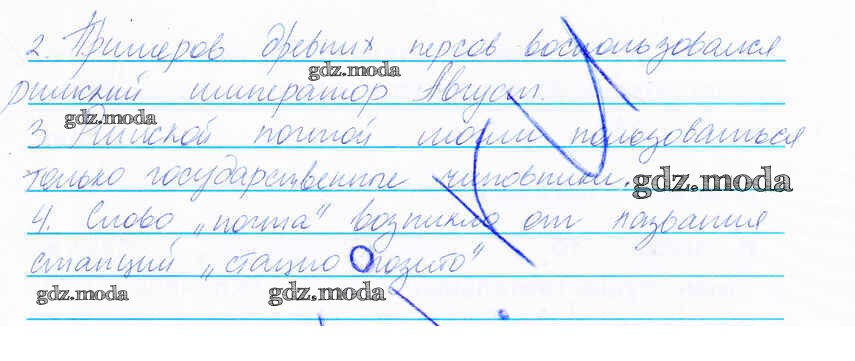 2. Примеров древних персов воспользовался
gdz.moda
римский император Август.
gdz.moda
3. Римской почтой могли пользоваться
только государственные чиновники.
gdz.moda
4. Слово „почта" возникло от названия
станций „стацио позито"
gdz.moda
gdz.moda